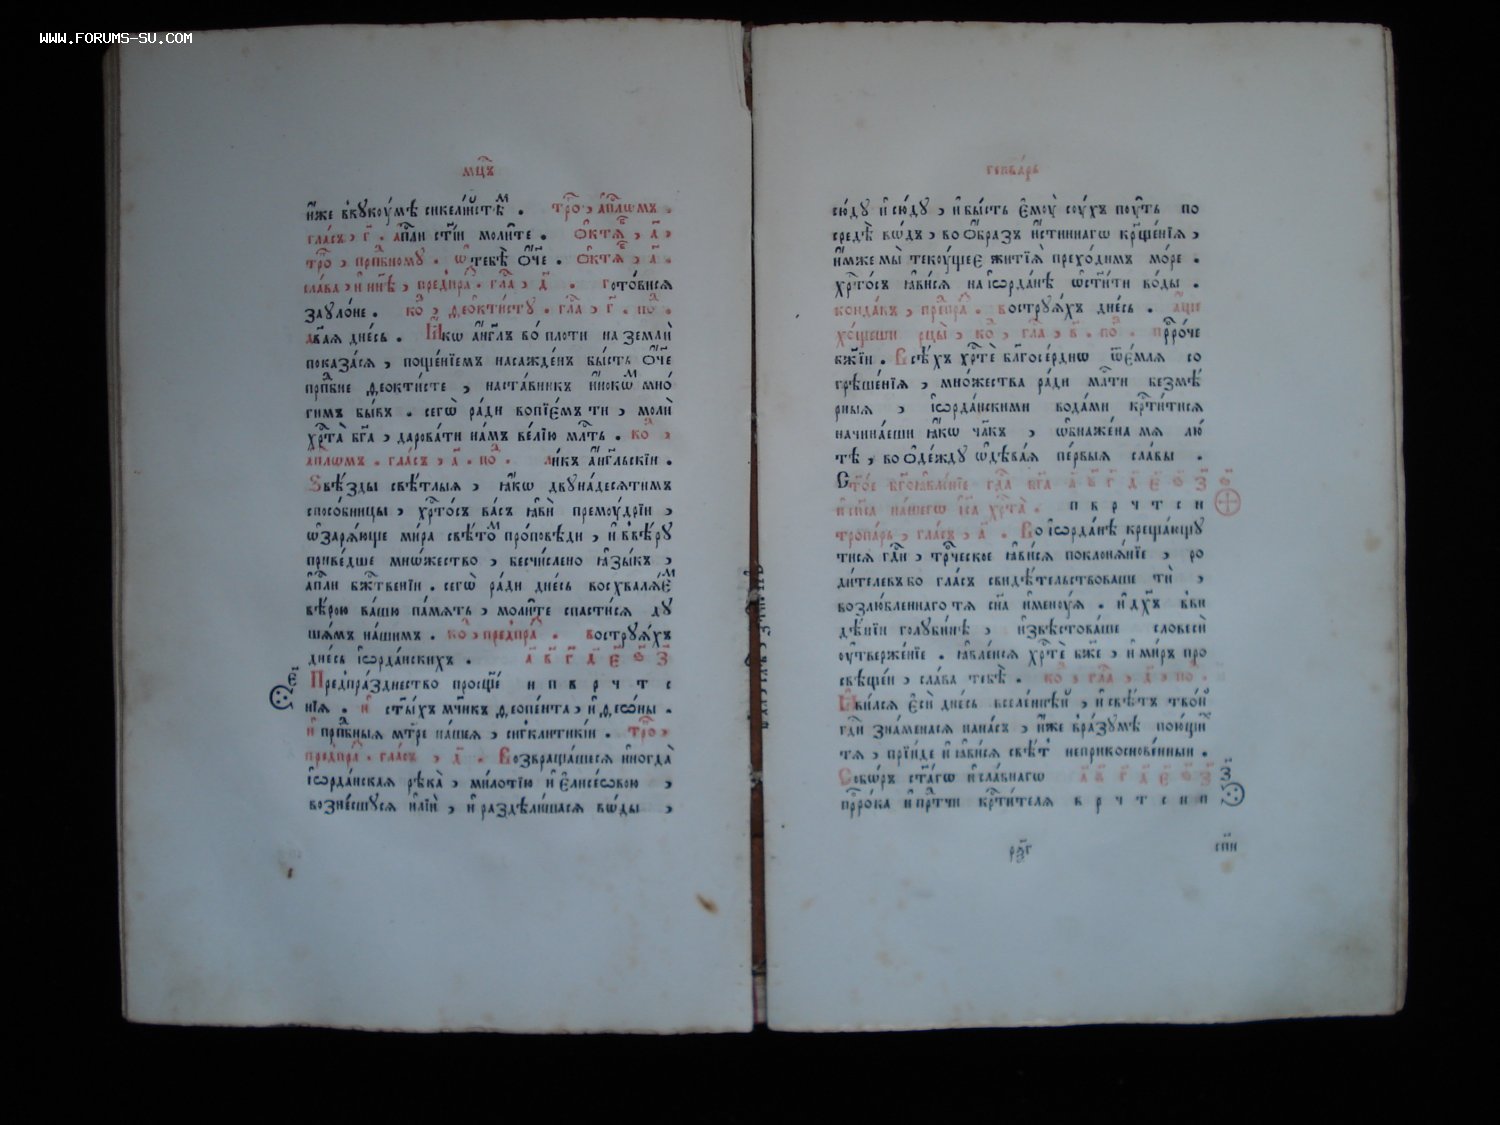 WWW.FORUMS-SU.COM
мцⷭ҇ъ
и҆́же вкукоу́мѣ сикелі́йстѣⷨ . трⷪ҇ , а҆пⷭ҇лѡмъ .
гла́съ , г҃ . а҆пⷭ҇ли ст҃і́и моли́те . Ѻ҆ктѧⷯ , а҃ ,
трⷪ҇ , прпⷣбному . ѡ҆ тебѣ̀ ѻ҆́ч҃е . Ѻ҆ктѧⷯ , а҃ .
сла́ва , и҆ ны́нѣ , предпра́ . гла , д҃ . гото́висѧ
заѵло́не . ко , ѳеокти́сту . гла , г҃ . по .
два́ѧ дне́сь . Ꙗ҆́кѡ а҆́нг҃лъ во́ плоти на землѝ
показа́сѧ , поще́нїемъ насажде́нъ бы́сть ѻ҆́ч҃е
прпⷣбне ѳеокти́сте , наста́вникъ и҆́нокѡⷨ мно́
гимъ бы́въ . сегѡ̀ ра́ди вопїе́мъ ти , молѝ
хрⷭ҇та̀ бг҃а , дарова́ти на́мъ ве́лїю млⷭ҇ть . ко ,
а҆пⷭ҇лѡмъ . гла́съ , д҃ . по . ли́къ а҆́нг҃льскїи .
Ѕвѣ́зды свѣ́тлыѧ , ꙗ҆́кѡ двуна́десѧтимъ
спосо́бницы , хрⷭ҇то́съ ва́съ ꙗ҆вѝ премоу́дрїи ,
ѡ҆зарѧ́юще ми́ра свѣ́тоⷨ про́повѣди , и҆ ввѣ́ру
приве́дше мно́жество , безчи́слено ꙗ҆зы́къ ,
а҆пⷭ҇ли бж҃твенїи . сего̀ ра́ди дне́сь восхвалѧ́еⷨ
вѣ́рою ва́шю па́мѧть , моли́те спасти́сѧ ду
ша́мъ на́шимъ . ко , предпра́ . востру́ѧхъ
дне́сь і҆ѡрда́нскихъ . а҃ в҃ г҃ д҃ є҃ ѕ҃ з҃
Предпра́зднество просщⷭ҇е н п в р ч т с
нїѧ . и҆ ст҃ы́хъ мч҃икъ ѳеопе́нта , и҆ ѳео́ны .
и҆ прпⷣбныѧ мт҃ре на́шеѧ , сигклитикі́и . трⷪ҇ ,
предпра́ . гла́съ , д҃ . Возвраща́шесѧ и҆ногда̀
і҆ѡрда́нскаѧ рѣка̀ , ми́лотїю и҆ є҆лисе́овою ,
возне́сшусѧ и҆лїѝ , и҆ раздѣлѝшасѧ во́ды ,
генва́рь
сю́ду и҆ сю́ду , и҆ бы́сть є҆моу̀ соу́хъ поу́ть по
средѣ̀ во́дъ , во ѻ҆́бразъ и҆́стиннаго крⷭ҇ще́нїѧ ,
и҆́мже мы̀ текоу́щее житїѧ̀ прехо́димъ мо́ре .
хрⷭ҇то́съ ꙗ҆ви́сѧ на і҆ѡрда́нѣ ѡ҆ст҃и́ти во́ды .
конда́къ , предпра́ . востру́ѧхъ дне́сь . а҆́ще
хо́щеши рцы̀ , ко , гла , в҃ . по . пррⷪ҇че
бж҃їи . Всѣ́хъ хрⷭ҇тѐ бл҃госе́рдно ѿе́млѧ со
грѣше́нїѧ , мно́жества ра́ди млⷭ҇ти безмѣ́
рныѧ , і҆ѡрда́нскими вода́ми крⷭ҇ти́тисѧ
начина́еши ꙗ҆́кѡ чл҃къ , ѡ҆бнаже́на мѧ лю́
тѣ , во ѻ҆де́жду ѡ҆дѣва́ѧ пе́рвыѧ сла́вы .
Ст҃о́е бг҃оѧвле́нїе гдⷭ҇а бг҃а а҃ в҃ г҃ д҃ є҃ ѕ҃ з҃
и҆ сп҃са на́шегѡ і҆с҃а хрⷭ҇та̀ . п в р ч т с н
тропа́рь , гла́съ , а҃ . Во і҆ѡрда́нѣ креща́ющу
тисѧ гдⷭ҇и , трⷪ҇ческое ꙗ҆ви́сѧ поклонѧ́нїе , ро
ди́телевъ бо гла́съ свидѣ́тельствоваше тѝ ,
возлю́бленнаго тѧ сн҃а и҆мену́ѧ . и҆ дх҃ъ вви
дѣ́нїи голуби́нѣ , и҆звѣ́ствоваше словесѝ
оу҆твержде́нїе . ꙗ҆вле́исѧ хрⷭ҇тѐ бж҃е , и҆ ми́ръ про
свѣще́и , сла́ва тебѣ̀ . ко , гла , д҃ , по .
Ꙗ҆ви́лсѧ є҆сѝ дне́сь вселе́ннѣй , и҆ свѣ́тъ тво́й
гдⷭ҇и зна́менасѧ на на́съ , и҆́же вра́зумѣ пою́щиⷯ
тѧ , прїи́де и҆ ꙗ҆ви́сѧ свѣ́тъ неприкоснове́нныи .
Собо́ръ ст҃а́гѡ и҆ сла́внагѡ а҃ в҃ г҃ д҃ є҃ ѕ҃ з҃
прⷪ҇ро́ка и҆ прⷣтчи крⷭ҇ти́телѧ в р ч т с н п
рлг сп҃и